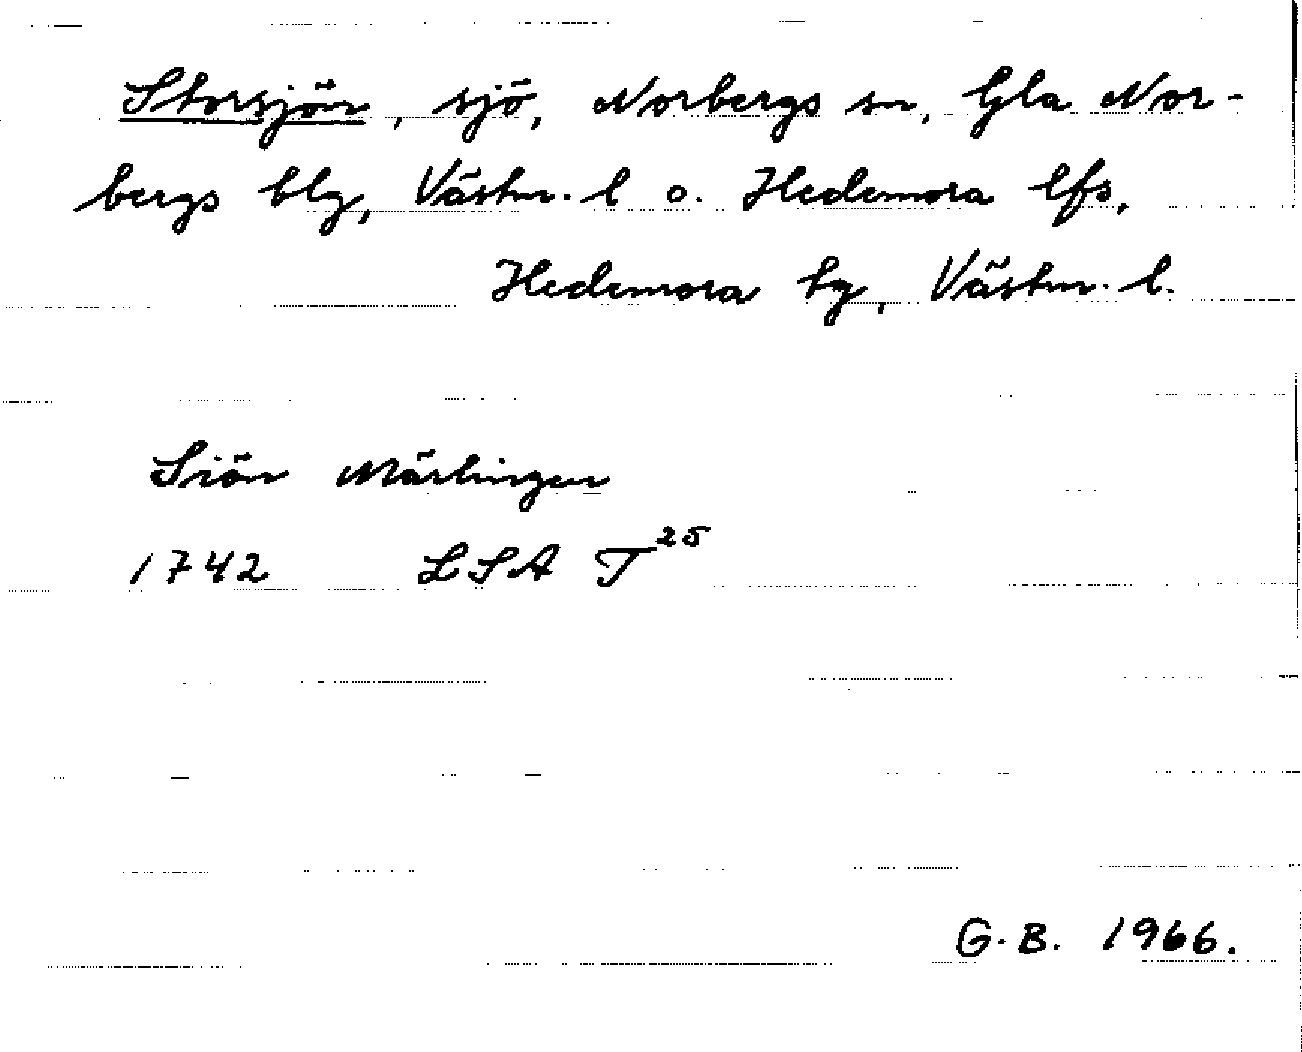 Storsjön, sjö, Norbergs sn, Gla Nor-
bergs blg, Västm. l o. Hedemora lfs,
Hedemora tg, Västm. l.
Siön Märlingen
1742 LSA T²⁵
G.B. 1966.